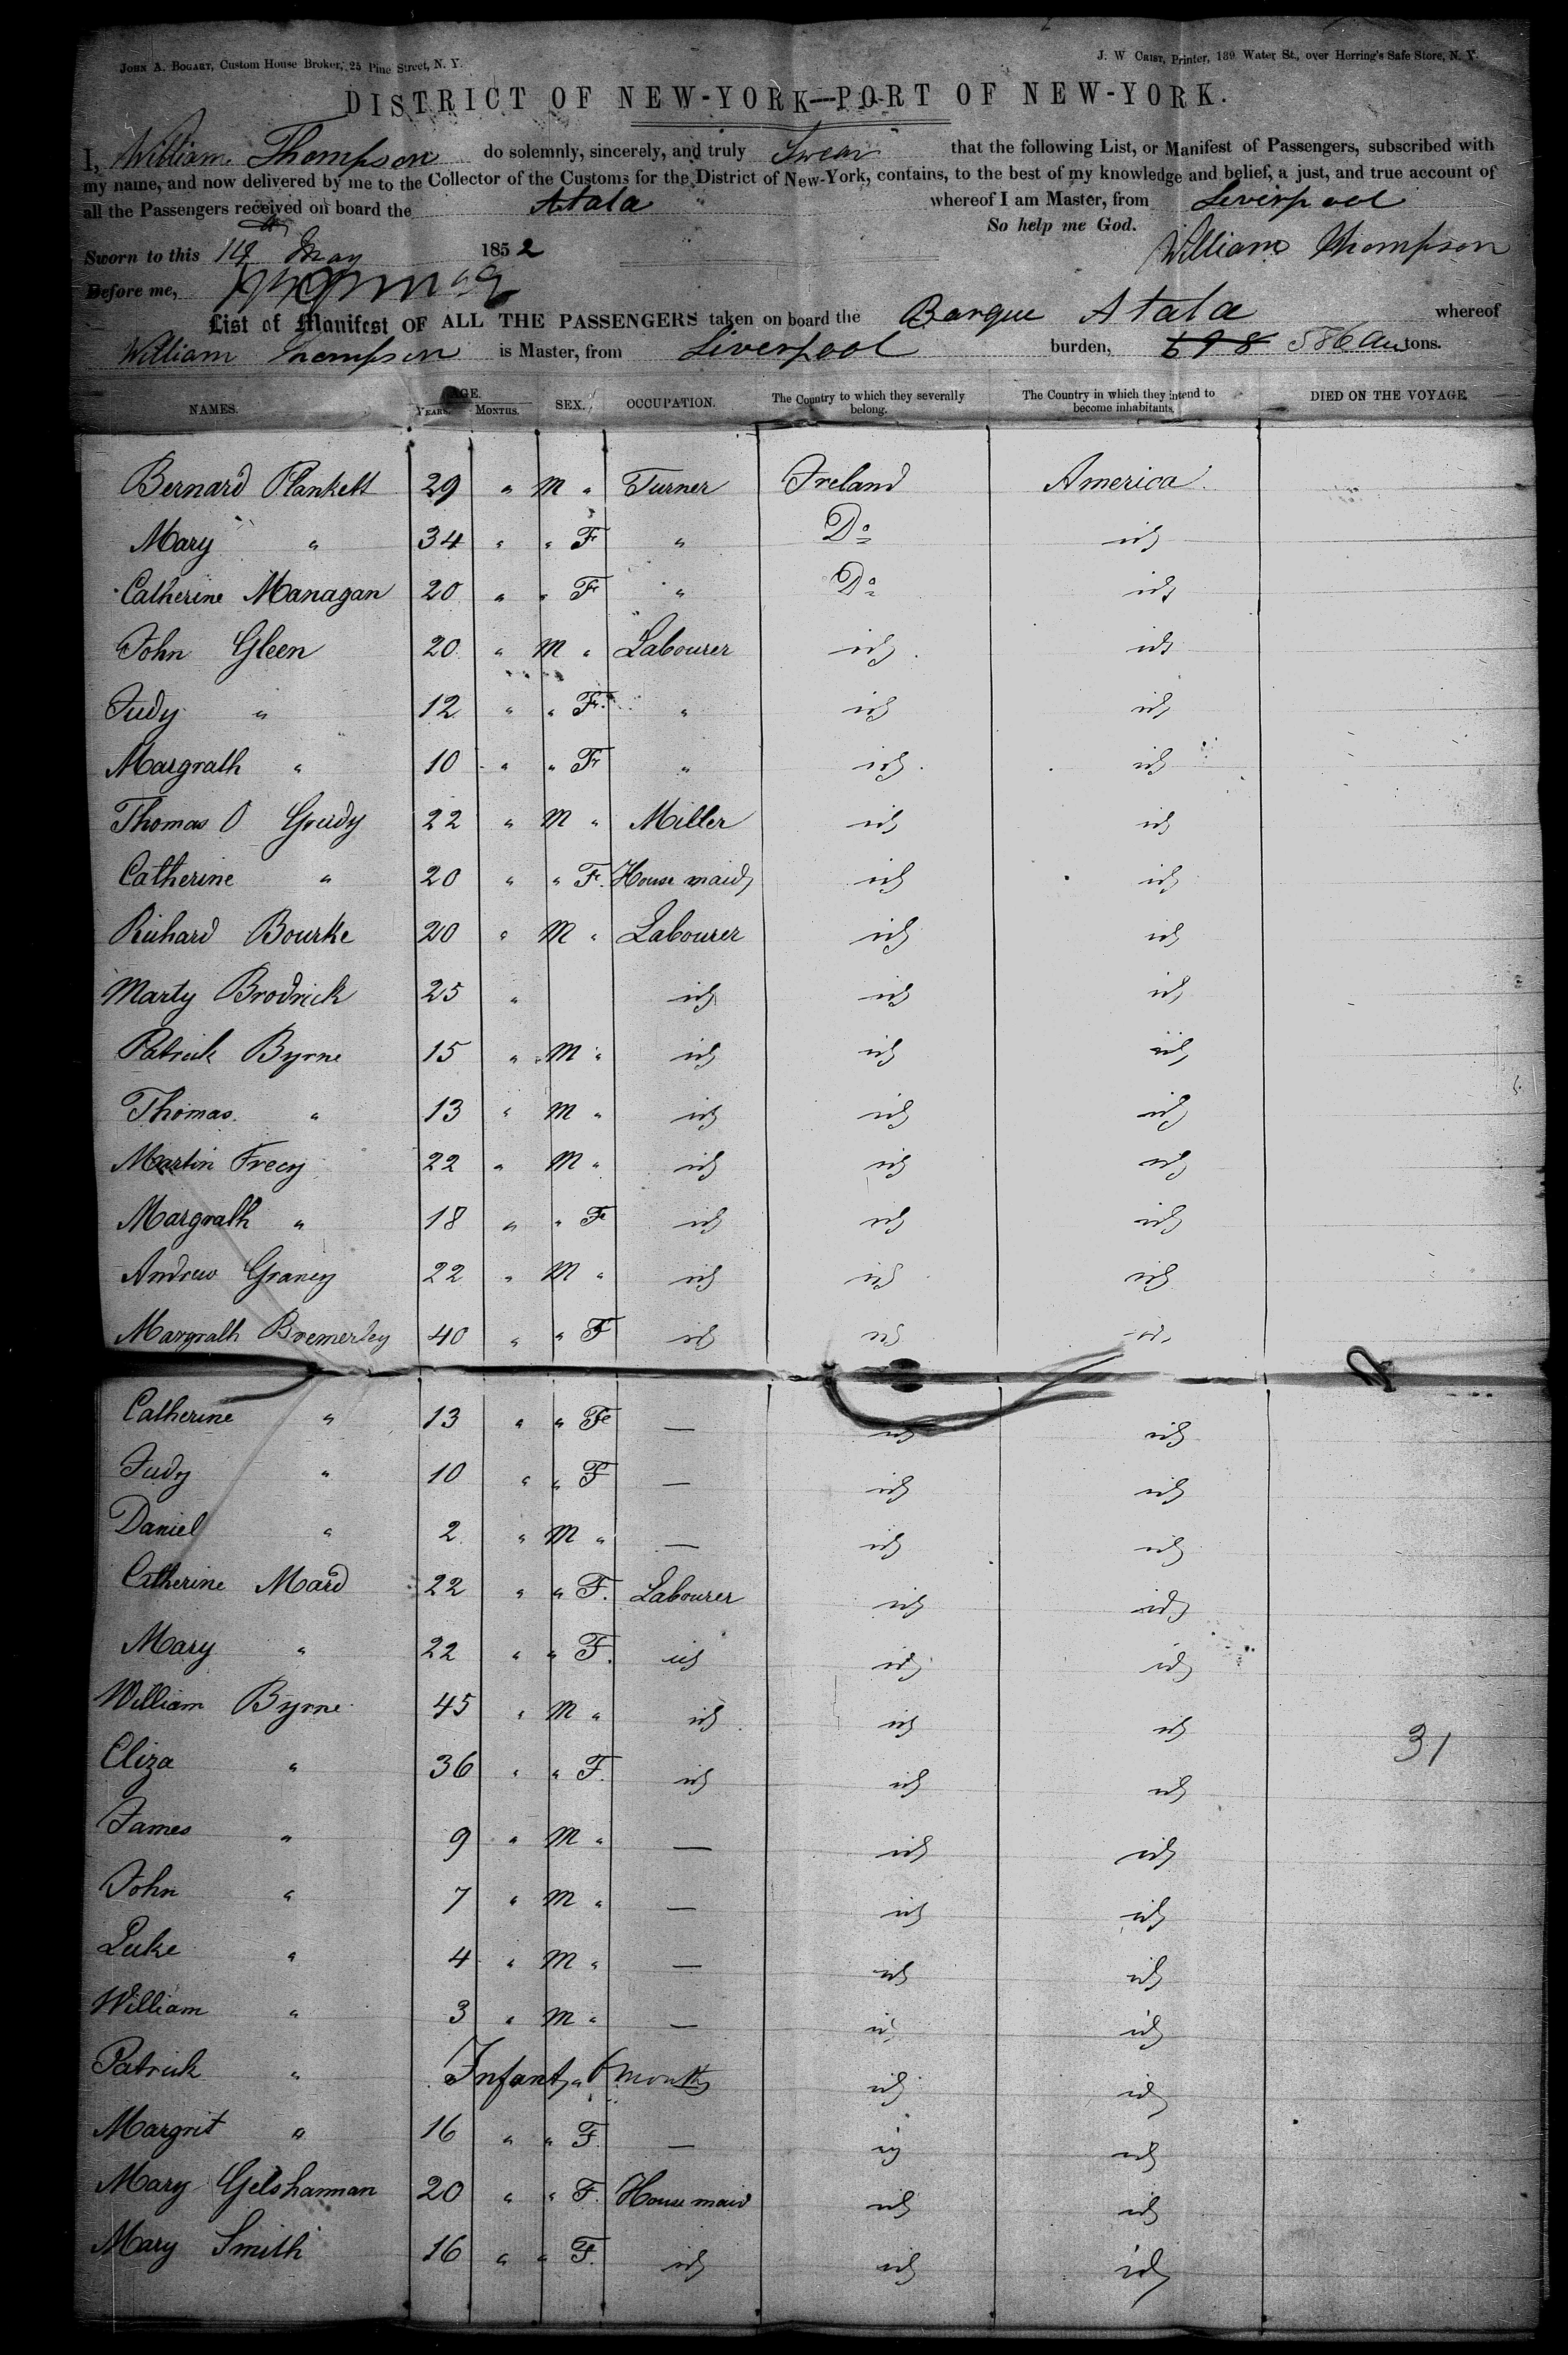 JOHN A. BOGART, Custom House Broker, 25 Pine Street, N. Y.
J. W CRIST, Printer, 139 Water St., over Herring's Safe Store, N. Y.
DISTRICT OF NEW-YORK—PORT OF NEW-YORK.
I, William Thompson do solemnly, sincerely, and truly Swear that the following List, or Manifest of Passengers, subscribed with
my name, and now delivered by me to the Collector of the Customs for the District of New-York, contains, to the best of my knowledge and belief, a just, and true account of
all the Passengers received on board the Atala whereof I am Master, from Liverpool
So help me God.
Sworn to this 19 May 1852 William Thompson
Before me,
List of Manifest OF ALL THE PASSENGERS taken on board the Barque Atala whereof
William Thompson is Master, from Liverpool burden, 698 586 tons.
NAMES. AGE. YEARS. MONTHS. SEX. OCCUPATION. The Country to which they severally belong. The Country in which they intend to become inhabitants. DIED ON THE VOYAGE.
Bernard Plankett 29 " M " Turner Ireland America
Mary " 34 " " F " Do id
Catherine Managan 20 " " F " Do id
John Gleen 20 " M " Labourer id id
Judy " 12 " " F. " id id
Margrath " 10 " " F " id id
Thomas O Gredy 22 " M " Miller id id
Catherine " 20 " " F. House maid id id
Richard Bourke 20 " M " Labourer id id
Marty Brodrick 25 " id id id
Patrick Byrne 15 " M " id id id
Thomas " 13 " M " id id id
Martin Frecy 22 " M " id id id
Margrath " 18 " " F id id id
Andrew Graney 22 " M " id id id
Margrath Bremerley 40 " " F id id id
Catherine " 13 " " Fe — id id
Judy " 10 " " F — id id
Daniel " 2 " M " — id id
Catherine Mard 22 " " F. Labourer id id
Mary " 22 " " F. id id id
William Byrne 45 " M " id id id
Eliza " 36 " " F. id id id 31
James " 9 " M " — id id
John " 7 " M " — id id
Luke " 4 " M " — id id
William " 3 " M " — id id
Patrick " Infant, " 6 months id id
Margrit " 16 " " F. — id id
Mary Gelshannan 20 " " F. House maid id id
Mary Smith 16 " " F. id id id